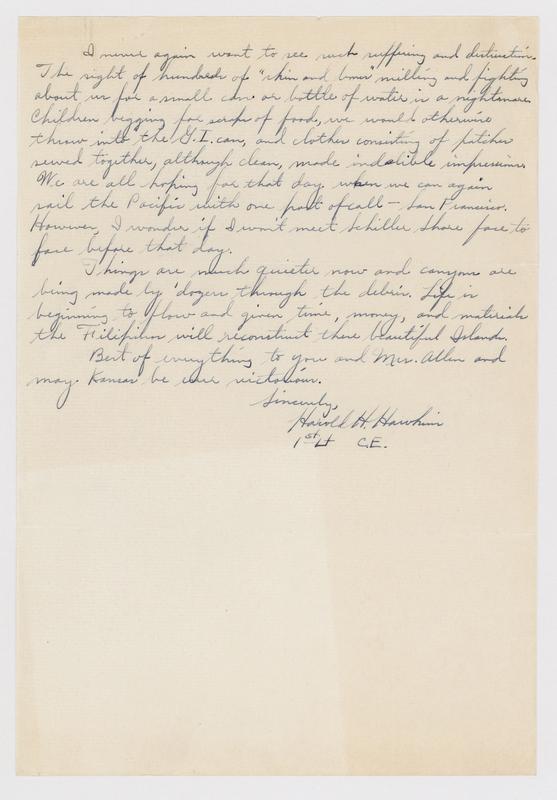 I never again want to see such suffering and destruction.
The sight of hundreds of "skin and bones" milling and fighting
about us for a small can or bottle of water is a nightmare.
Children begging for scraps of food, we would otherwise
throw into the G.I. can, and clothes consisting of patches
sewed together, although clean, made indelible impressions.
We are all hoping for that day when we can again
sail the Pacific with one port of call – San Francisco.
However, I wonder if I won't meet Schiller Shore face to
face before that day.
Things are much quieter now and canyons are
being made by 'dozers through the debris. Life is
beginning to flow and given time, money, and materials
the Filipinos will reconstruct there beautiful Islands.
Best of everything to you and Mrs. Allen and
may Kansas be ever victorious.
Sincerely,
Harold H. Hawkins
1st Lt C.E.